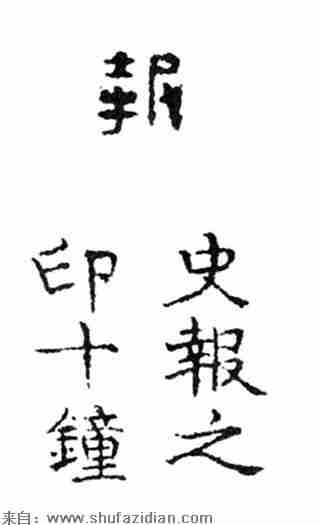 報
史報之
印十鐘
来自：www.shufazidian.com